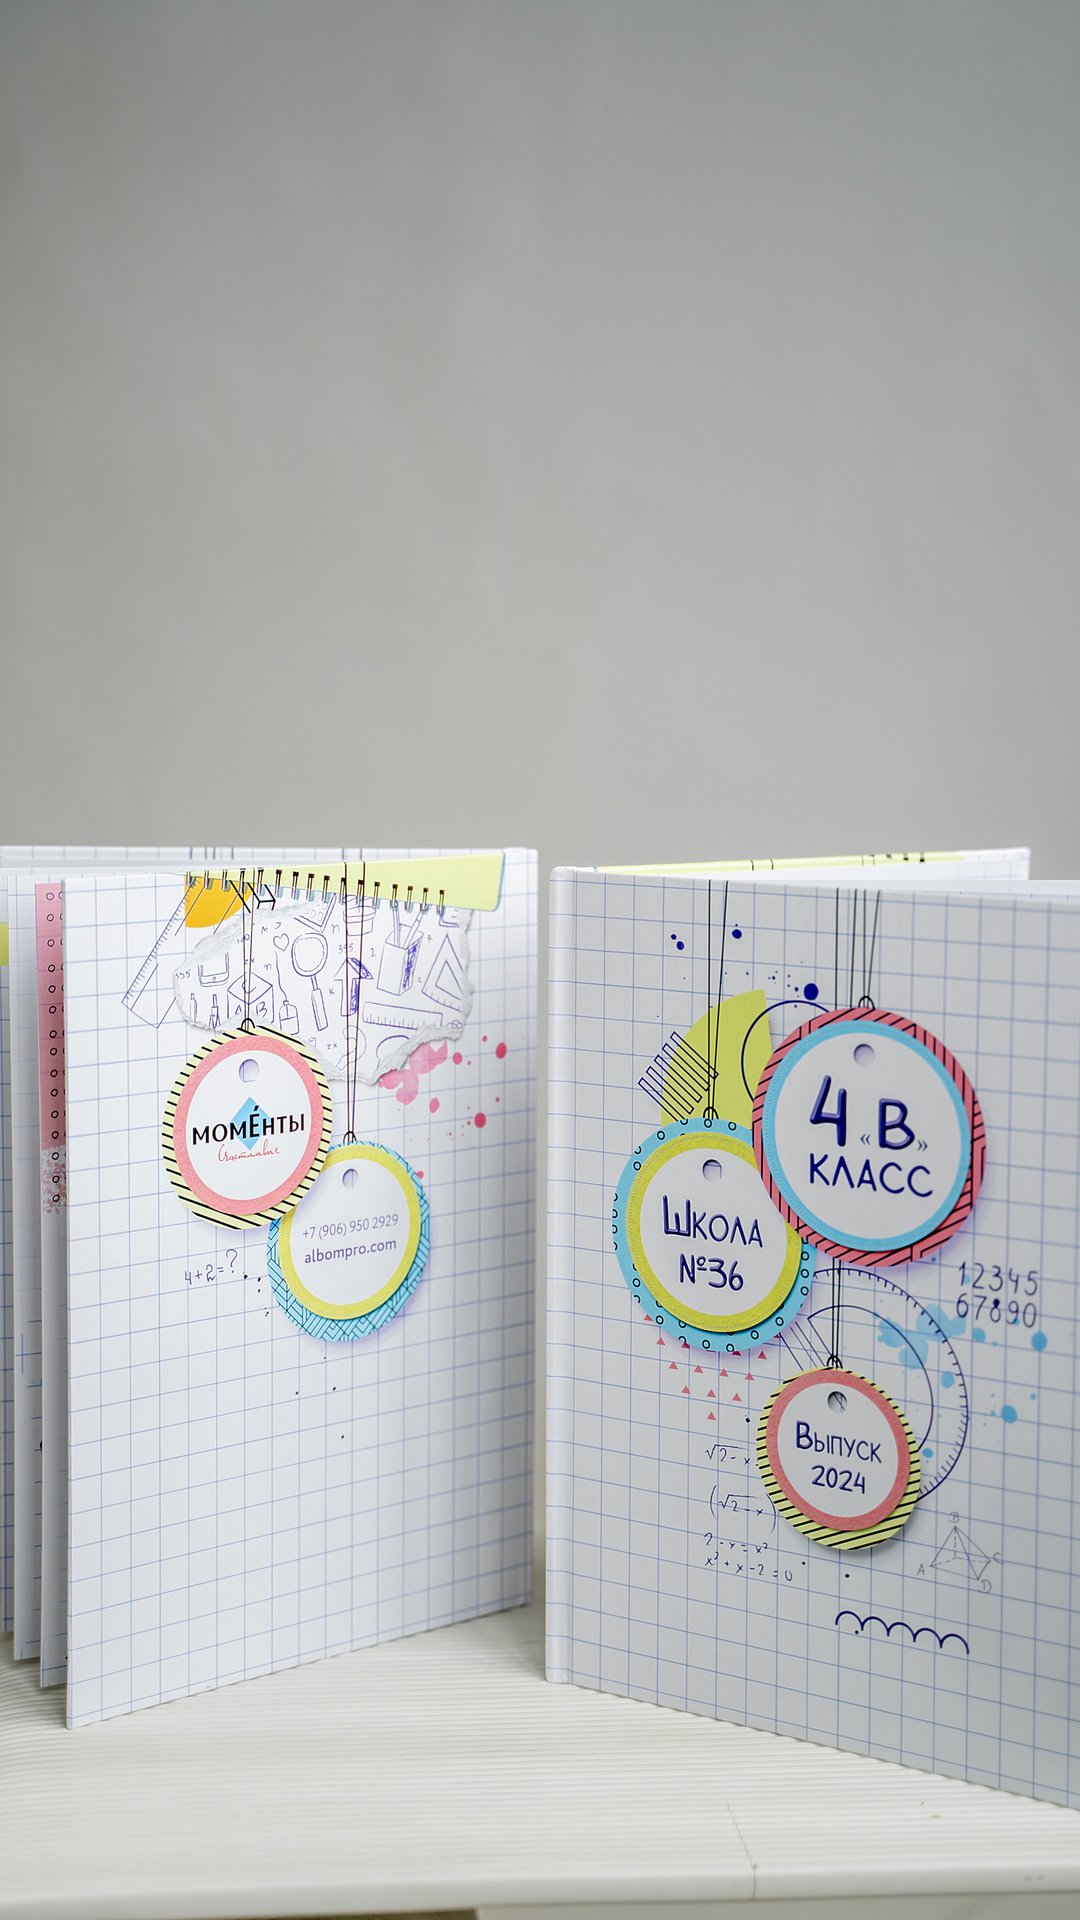 МОМЕ́НТЫ
Счастливые
+7 (906) 950 2929
albompro.com
4+2=?
4 «В»
КЛАСС
Школа
№36
Выпуск
2024
12345
67890
√2-x
(√2-x)
2-x=x²
x²+x-2=0
B
A
C
D